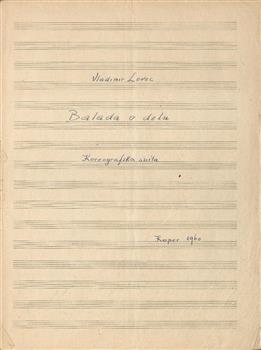 Vladimir Lovec
Balada o delu
Koreografska suita
Koper 1960